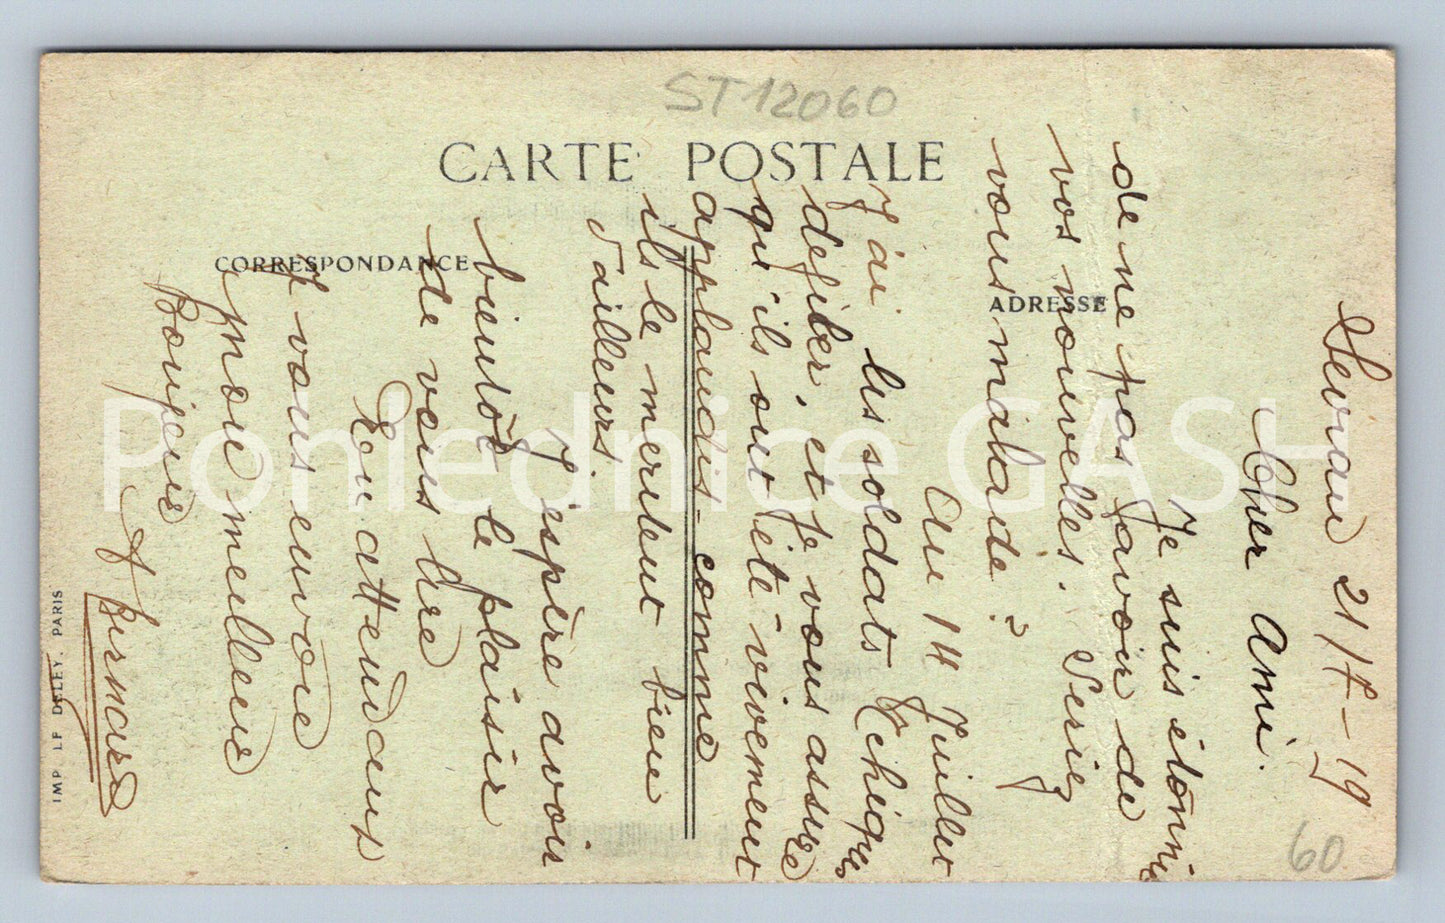 ST12060
CARTE POSTALE
CORRESPONDANCE
ADRESSE
Sevran 21/7-19
Cher Ami.
Je suis étonné
de ne pas savoir de
vos nouvelles. Seriez
vous malade ?
Au 14 Juillet
J'ai les soldats Tchèques
defiler, et je vous assure
qu'ils ont été vivement
applaudis - comme
ils le meritent bien
d'ailleurs.
J'espère avoir
bientôt le plaisir
de vous lire
En attendant
J vous envoie
mon meilleur
Bonjour
IMP. LF DELEY, PARIS
60
Pohlednice GASH